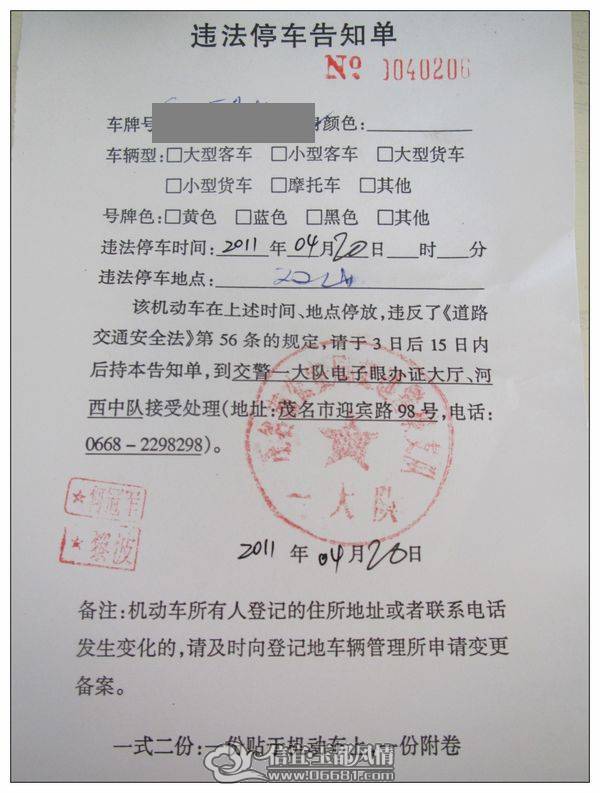 违法停车告知单
No 0040206
车牌号 身颜色:
车辆型:□大型客车 □小型客车 □大型货车
□小型货车 □摩托车 □其他
号牌色:□黄色 □蓝色 □黑色 □其他
违法停车时间: 2011 年 04 月 20 日 时 分
违法停车地点:
该机动车在上述时间、地点停放,违反了《道路
交通安全法》第 56 条的规定,请于 3 日后 15 日内
后持本告知单,到交警一大队电子眼办证大厅、河
西中队接受处理(地址:茂名市迎宾路 98 号,电话:
0668-2298298)。
一大队
2011 年 04 月 20 日
备注:机动车所有人登记的住所地址或者联系电话
发生变化的,请及时向登记地车辆管理所申请变更
备案。
一式二份:一份贴于机动车上,一份附卷
信宜玉都风情
www.06681.com